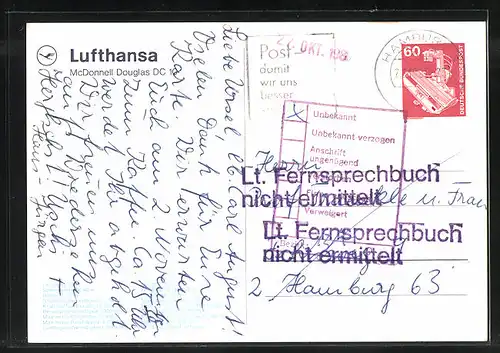 Lufthansa
McDonnell Douglas DC 10
Liebe Ursel, lb. Carl August!
Vielen Dank für Eure
Karte. Wir erwarten
Euch am 2. November
zum Kaffee. Ca. 15 Uhr
werdet Ihr abgeholt.
Wir freuen uns
auf Wiedersehen
Herzlichst
Hans-Jürgen
Post
damit
wir uns
besser
27. OKT. 198
HAMBURG
60
DEUTSCHE BUNDESPOST
X Unbekannt
Unbekannt verzogen
Anschrift
ungenügend
Verweigert
Herrn
u. Frau
Lt. Fernsprechbuch
nicht ermittelt
Lt. Fernsprechbuch
nicht ermittelt
2 Hamburg 63